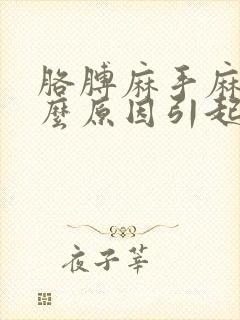 胳膊麻手麻
麼原因引起
夜子莘